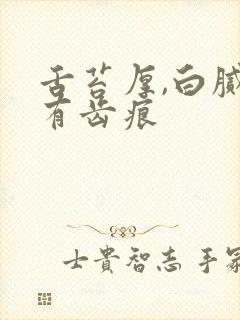 舌苔厚,白腻
有齿痕
士貴智志 手冢